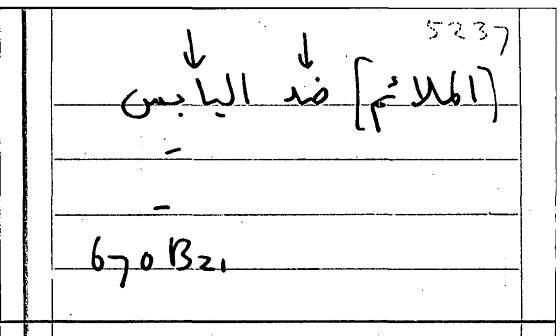 5237
[الملائم] ضد اليابس
-
-
670 B21